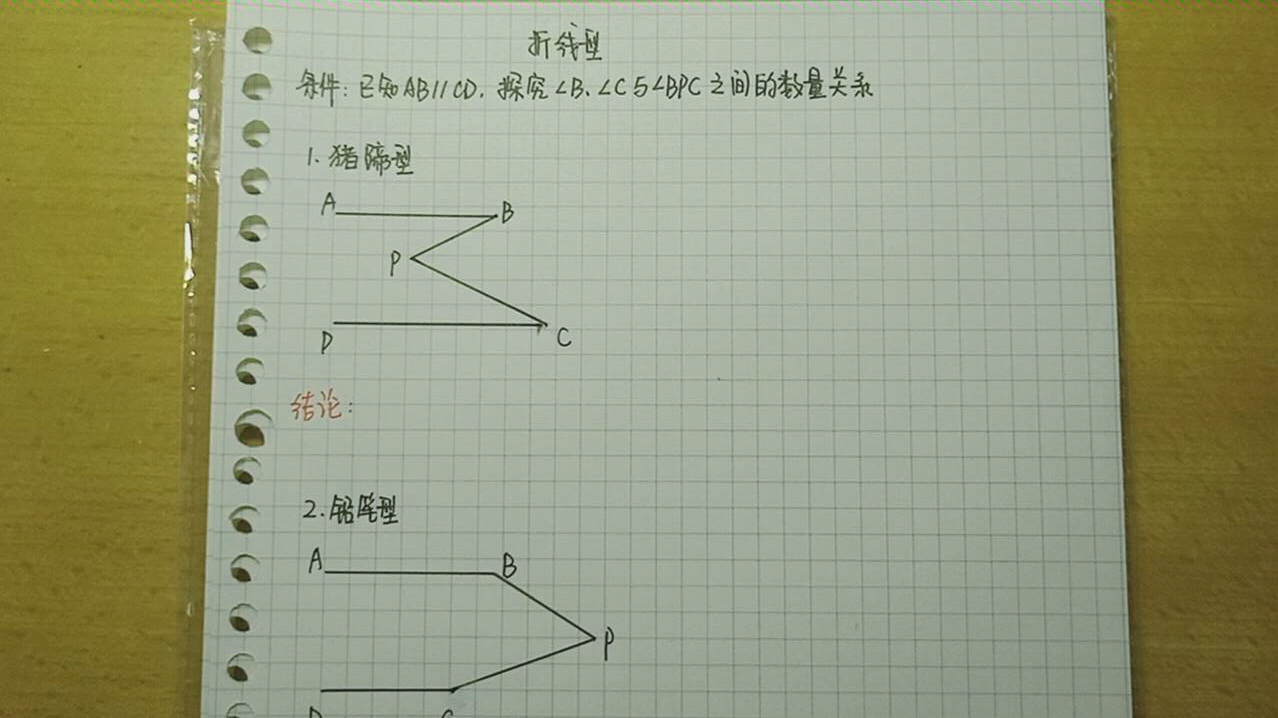 折线型
条件：已知AB//CD，探究∠B、∠C与∠BPC之间的数量关系
1.猪蹄型
A
B
P
D
C
结论：
2.铅笔型
A
B
P